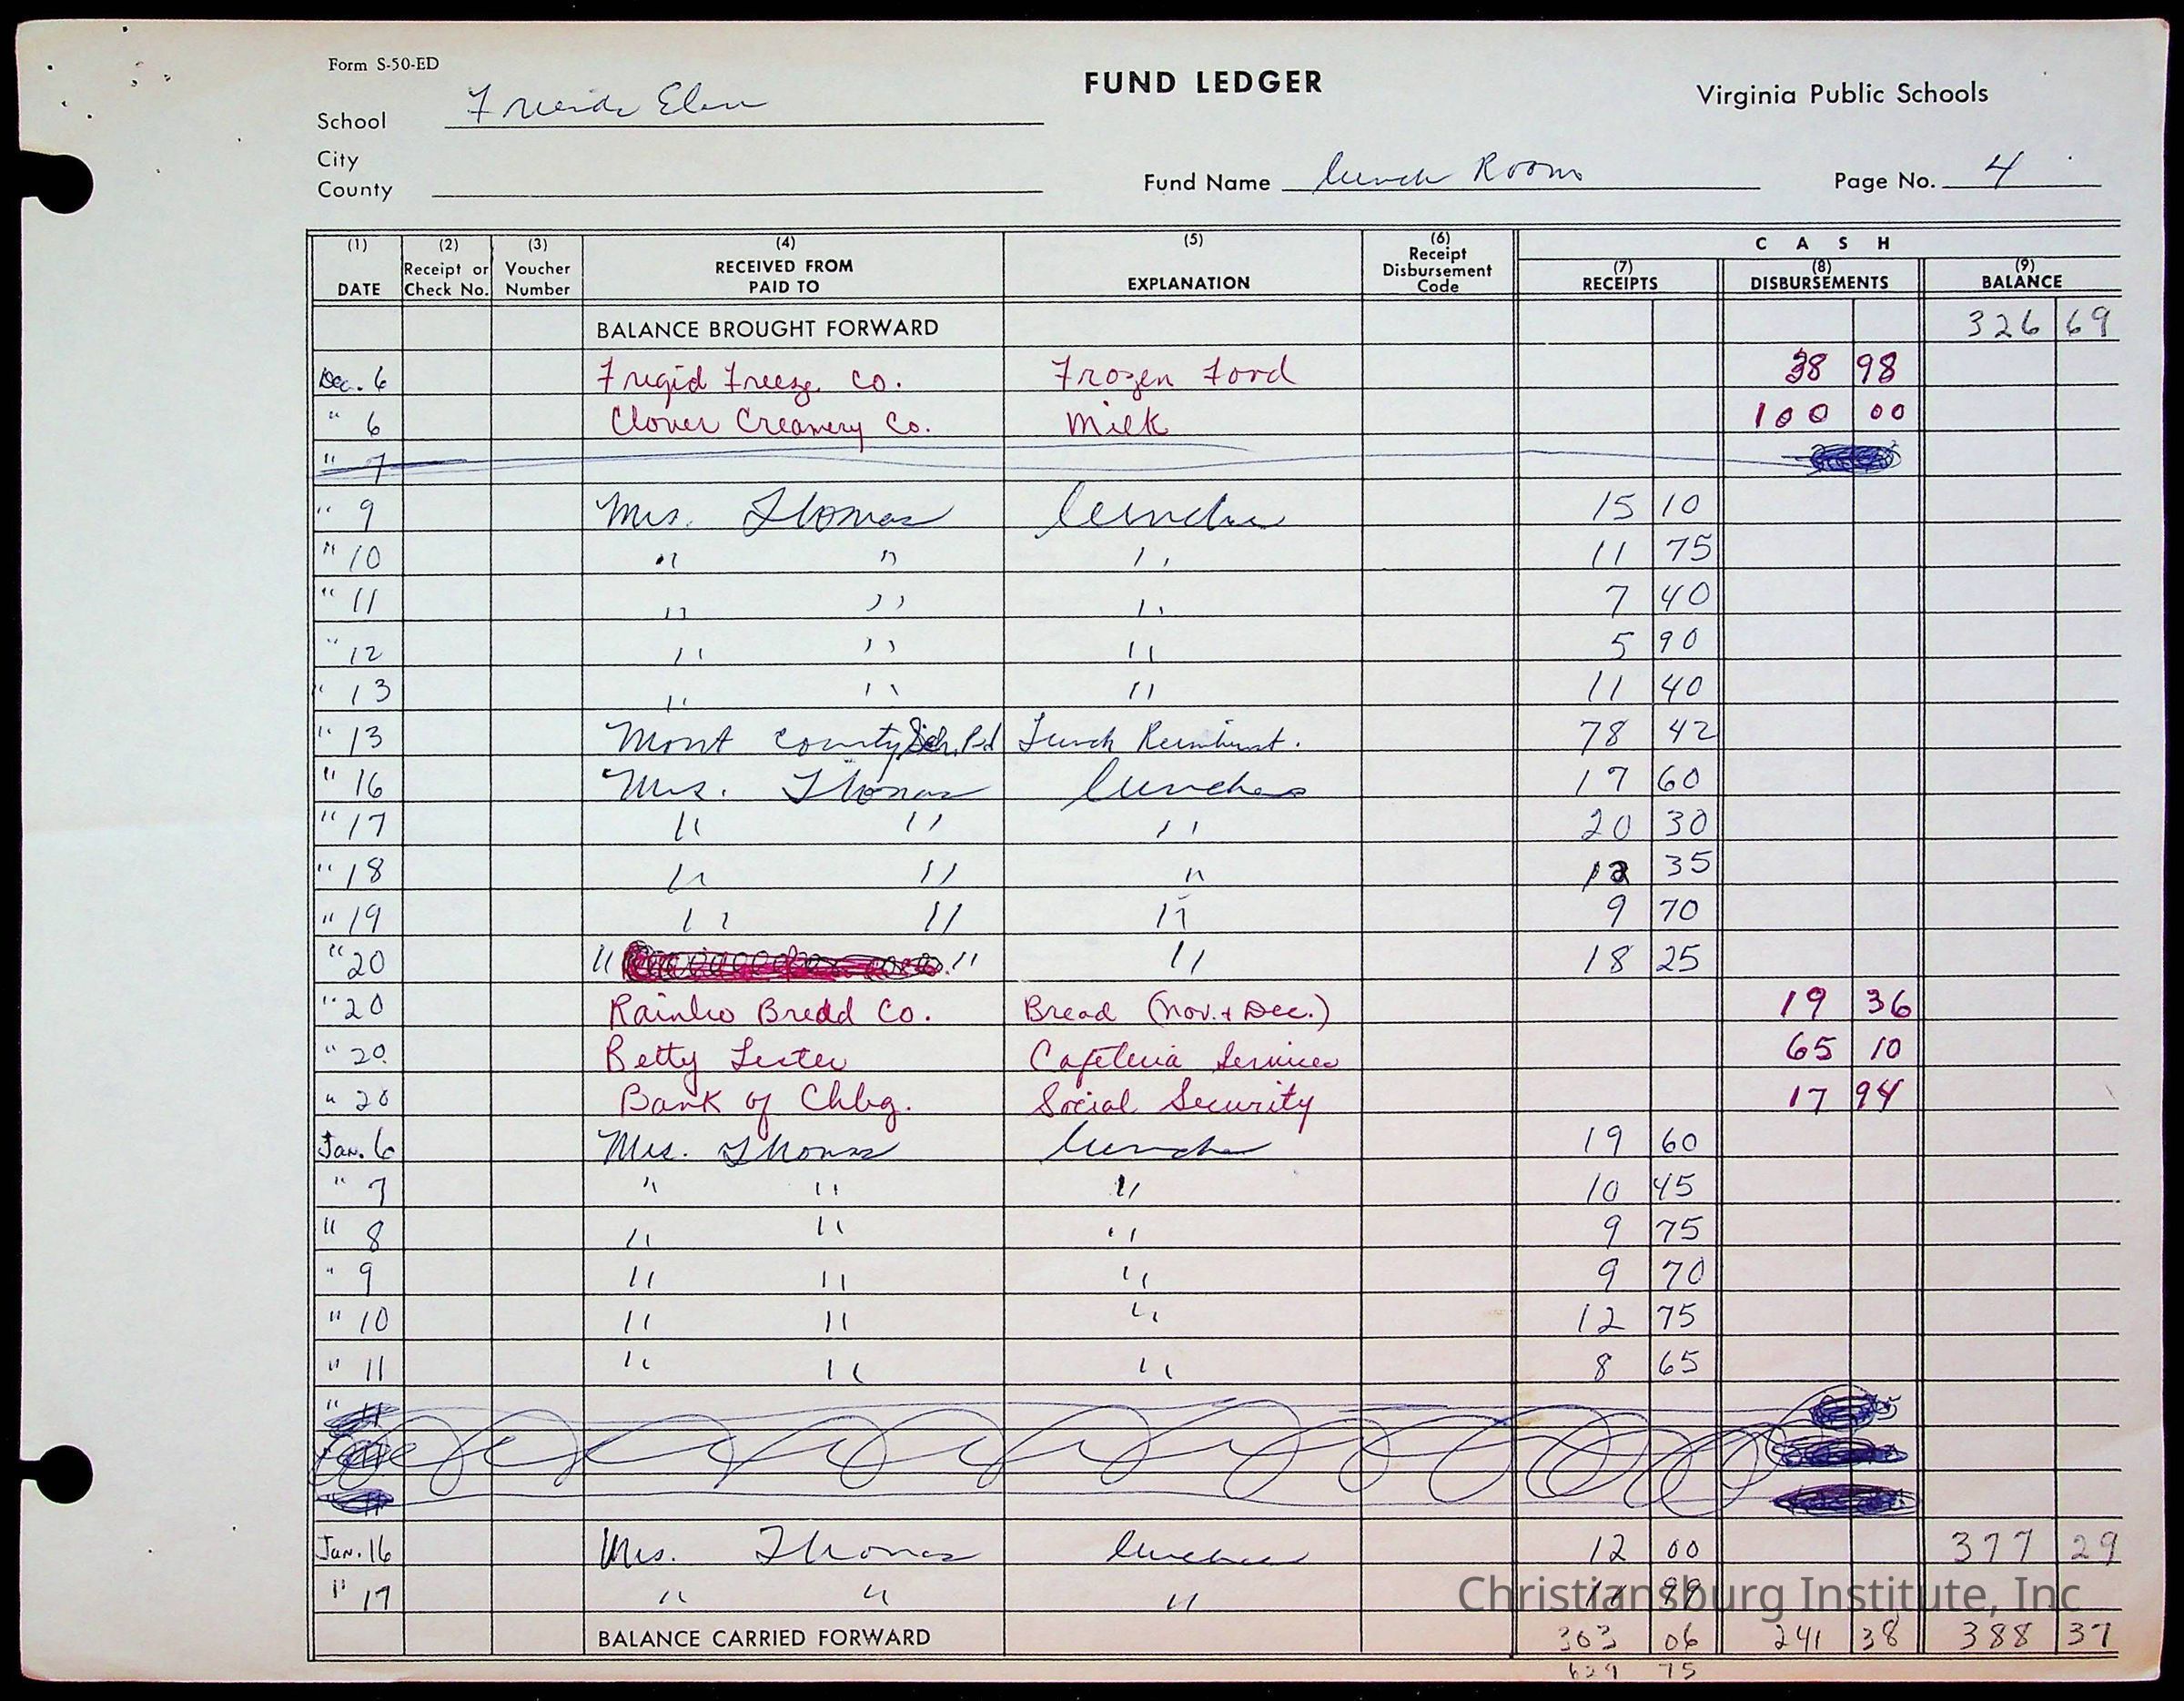 Form S-50-ED
FUND LEDGER
Virginia Public Schools
School Friends Elem
City
County
Fund Name Lunch Room
Page No. 4
(1) DATE (2) Receipt or Check No. (3) Voucher Number (4) RECEIVED FROM PAID TO (5) EXPLANATION (6) Receipt Disbursement Code CASH (7) RECEIPTS (8) DISBURSEMENTS (9) BALANCE
BALANCE BROUGHT FORWARD 326 69
Dec. 6 Frigid Freeze Co. Frozen Food 38 98
" 6 Clover Creamery Co. Milk 100 00
" 7
" 9 Mrs. Thomas lunches 15 10
" 10 " " " 11 75
" 11 " " " 7 40
" 12 " " " 5 90
" 13 " " " 11 40
" 13 Mont County Sch. Bd Lunch Reimburst. 78 42
" 16 Mrs. Thomas lunches 17 60
" 17 " " " 20 30
" 18 " " " 12 35
" 19 " " " 9 70
" 20 " " " 18 25
" 20 Rainbo Bread Co. Bread (Nov. + Dec.) 19 36
" 20 Betty Lester Cafeteria Services 65 10
" 20 Bank of Chbg. Social Security 17 94
Jan. 6 Mrs. Thomas lunches 19 60
" 7 " " " 10 45
" 8 " " " 9 75
" 9 " " " 9 70
" 10 " " " 12 75
" 11 " " " 8 65
Jan. 16 Mrs. Thomas lunches 12 00 377 29
" 17 " " "
Christiansburg Institute, Inc
BALANCE CARRIED FORWARD 303 06 241 38 388 37
629 75